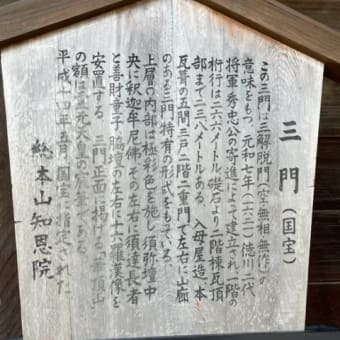 三門(国宝)
この三門は三解脱門(空・無相・無作)の
意味をもつ。元和七年(一六二一)徳川二代
将軍秀忠公の寄進によって建立され、一階の
桁行は二六・六メートル、礎石より二階棟瓦頂
部まで二三・八メートルある。入母屋造、本
瓦葺の五間三戸二階二重門で左右に山廊
のある三門特有の形式をもっている。
上層の内部は極彩色を施し須弥壇中
央に釈迦牟尼佛、その左右に須達長者
と善財童子、脇壇の左右に十六羅漢像を
安置する。三門正面に掲げる「華頂山」
の額は霊元天皇の宸筆である。
平成十四年五月、国宝に指定された
総本山知恩院